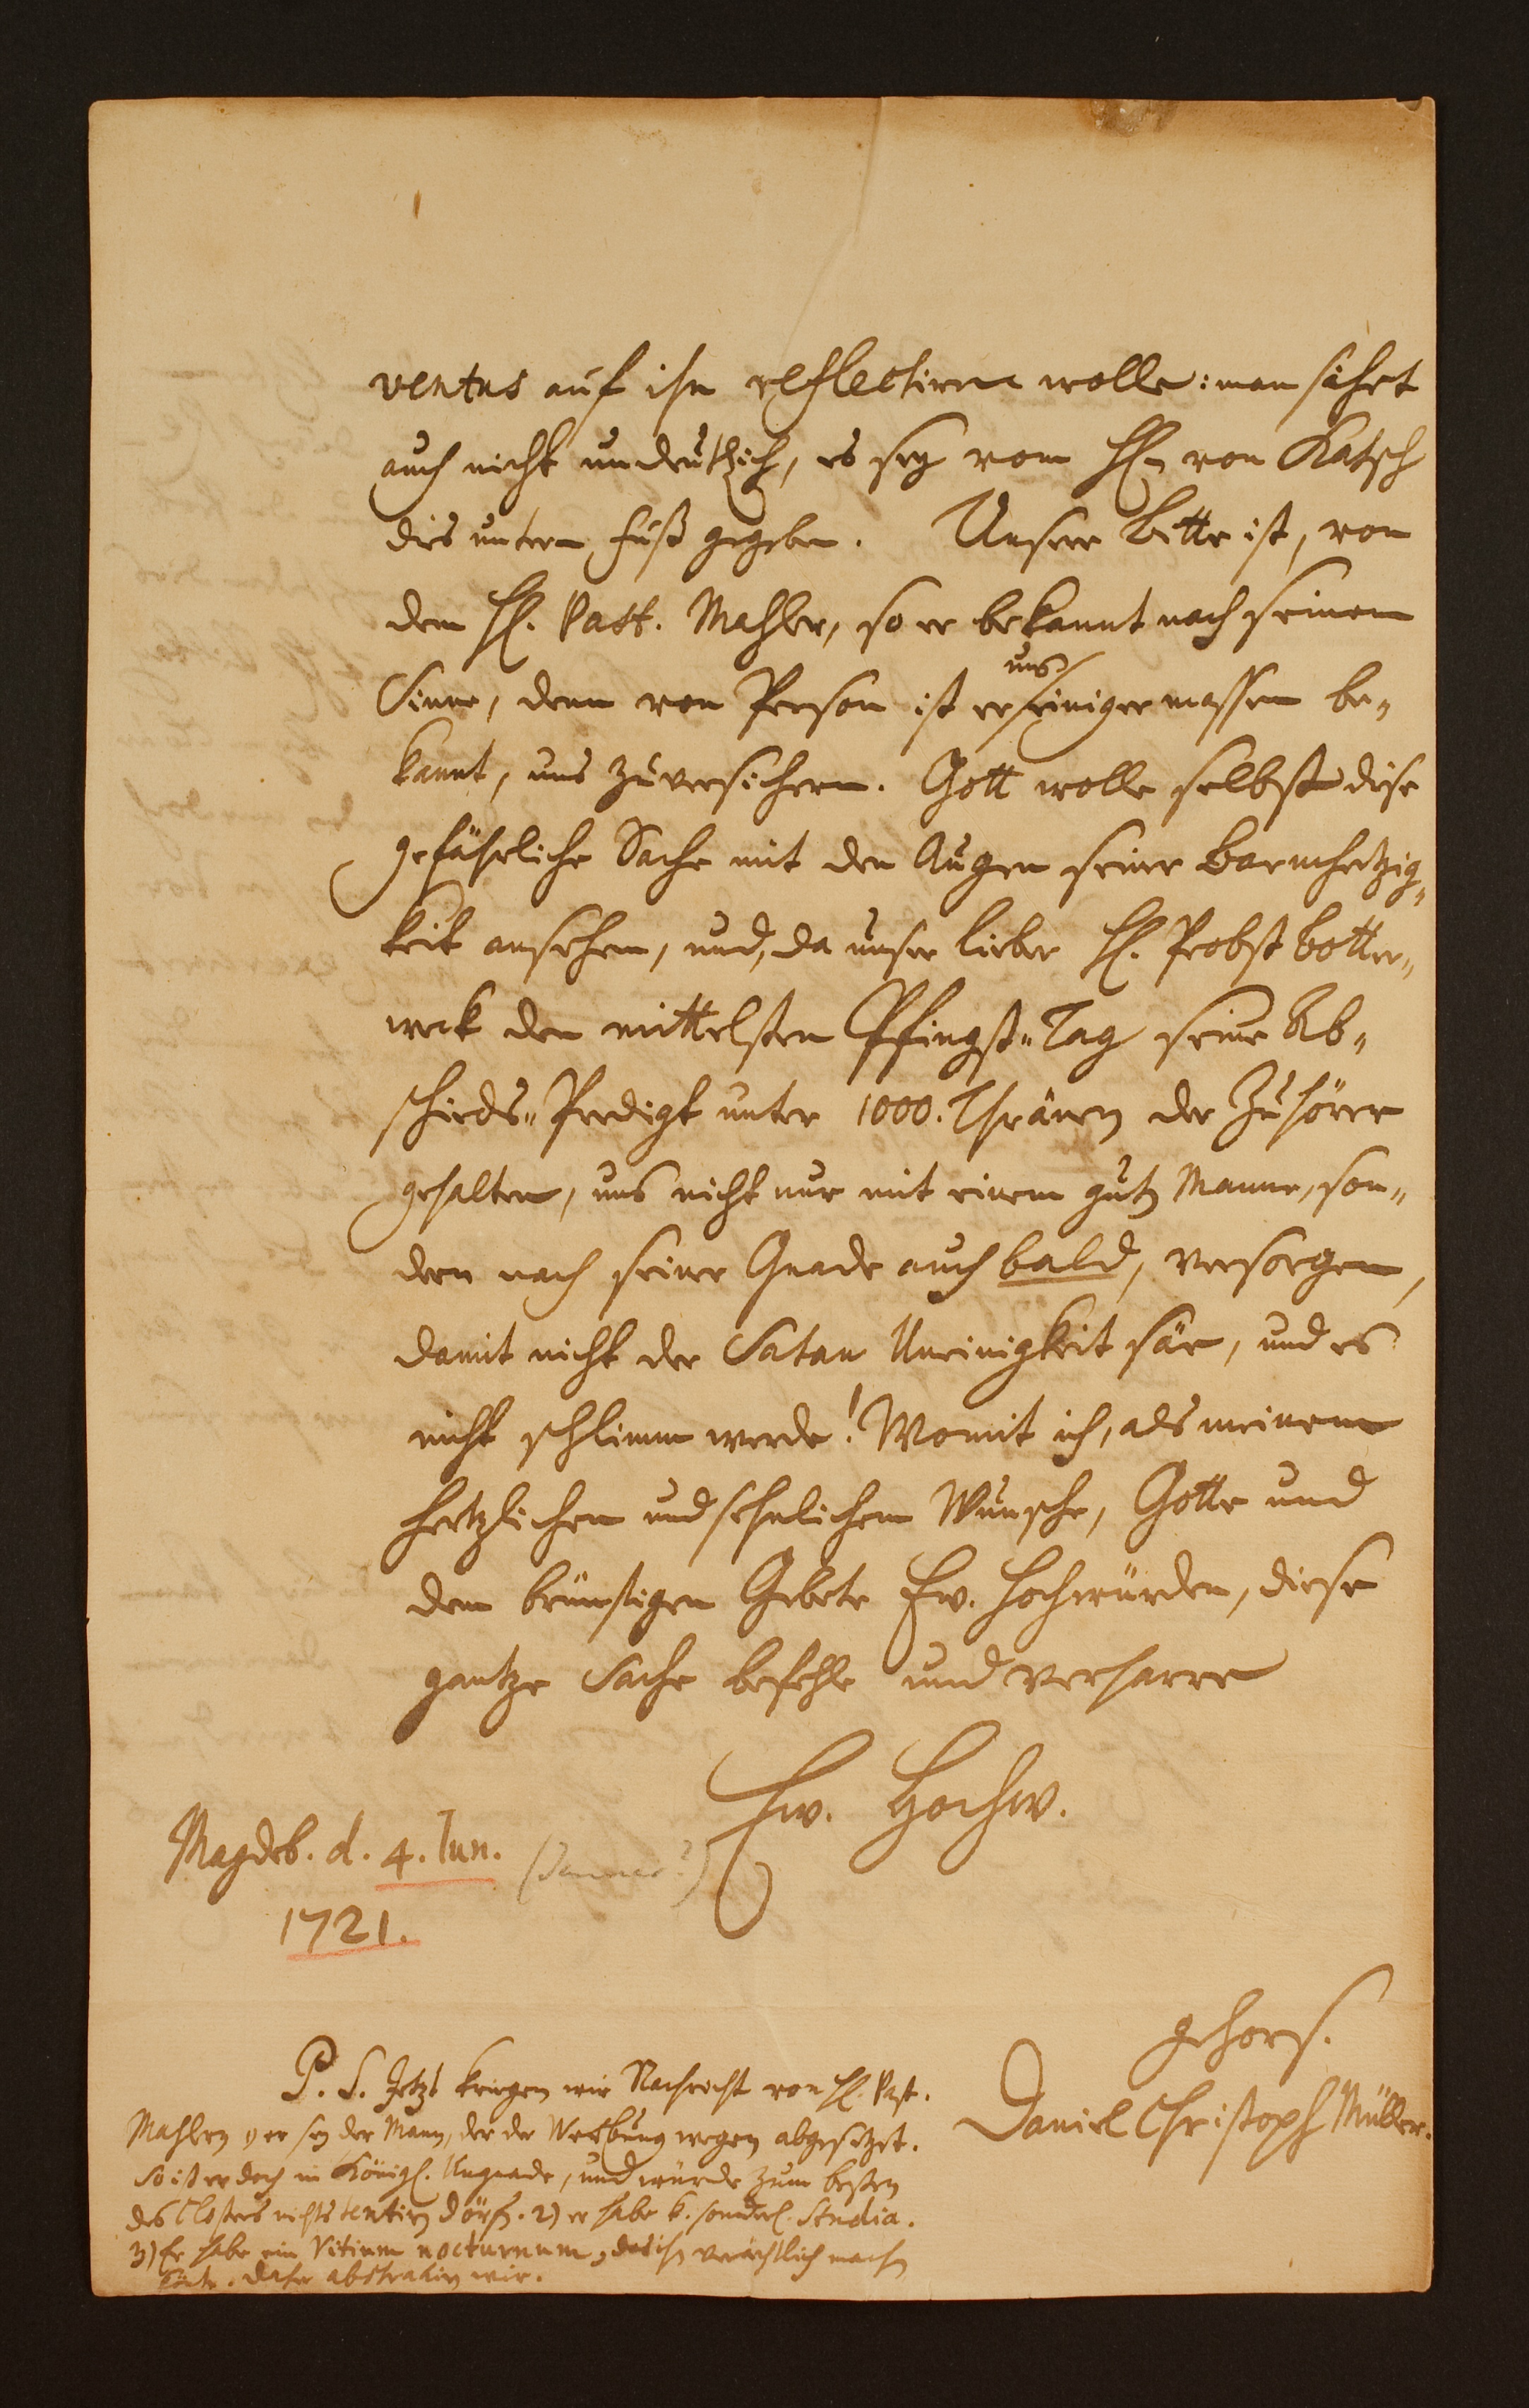 ventus auf ihn reflectiren wolle: man siehet
auch nicht undeutlich, es sey vom H. von Katsch
dies untern Fuß gegeben. Unsere Bitte ist, von
dem H. Past. Mahler, so er bekannt nach seinem
Sinne, denn von Person ist er uns einiger massen be-
kannt, uns zu versichern. Gott wolle selbst diese
gefährliche Sache mit den Augen seiner Barmhertzig-
keit ansehen, und, da unser lieber H. Probst Botter-
weck den mittelsten Pfingst-Tag seine Ab-
schieds-Predigt unter 1000. Thränen der Zuhörer
gehalten, uns nicht nur mit einem guten Manne, son-
dern nach seiner Gnade auch bald, versorgen,
damit nicht der Satan Uneinigkeit säe, und es
nicht schlimm werde! Womit ich, als meinem
hertzlichen und sehnlichem Wunsche, Gotte und
dem brünstigen Gebete Ew. Hochwürden, diese
gantze Sache befehle und verharre
Ew. Hochw.
Magdeb. d. 4. Jun. (Januar?)
1721.
gehors.
Daniel Christoph Müller.
P. S. Jetzt kriegen wir Nachricht von H. Past.
Mahlern 1) er sey der Mann, der der Werbung wegen abgesetzet.
So ist er doch in Königl. Ungnade, und würde zum besten
des Closters nichts tentiren dörfen. 2) er habe k. sonderl. Studia.
3) Er habe ein Vitium nocturnum, das ihn verächtlich machen
könte. Daher abstrahiren wir.